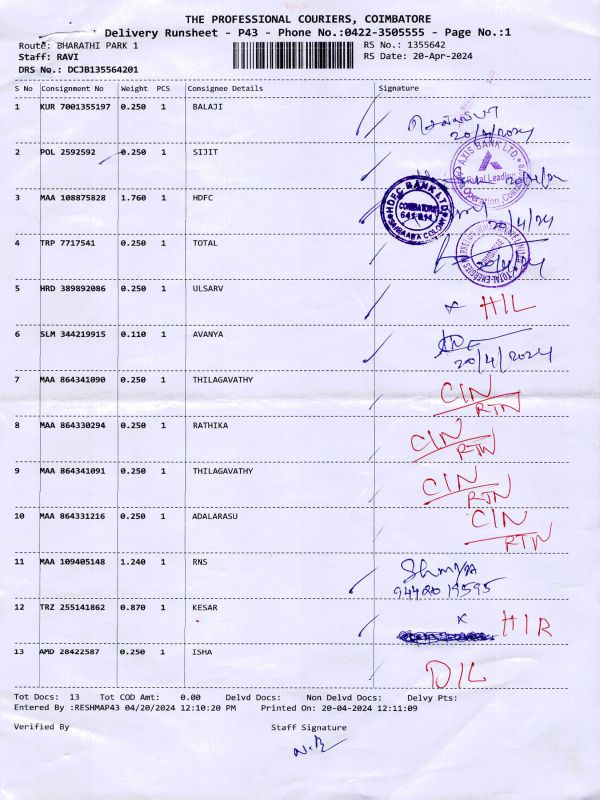 THE PROFESSIONAL COURIERS, COIMBATORE
Delivery Runsheet - P43 - Phone No.:0422-3505555 - Page No.:1
Route: BHARATHI PARK 1
RS No.: 1355642
Staff: RAVI
RS Date: 20-Apr-2024
DRS No.: DCJB135564201
S No Consignment No Weight PCS Consignee Details Signature
1 KUR 7001355197 0.250 1 BALAJI
20/4/2024
2 POL 2592592 0.250 1 SIJIT
AXIS BANK LTD.
3 MAA 108875828 1.760 1 HDFC
HDFC BANK LTD
COIMBATORE
SAIBABA COLONY
20/4/24
4 TRP 7717541 0.250 1 TOTAL
20/4/24
5 HRD 389892086 0.250 1 ULSARV
x HIL
6 SLM 344219915 0.110 1 AVANYA
20/4/2024
7 MAA 864341090 0.250 1 THILAGAVATHY
CIN
RTN
8 MAA 864330294 0.250 1 RATHIKA
CIN
RTN
9 MAA 864341091 0.250 1 THILAGAVATHY
CIN
RTN
10 MAA 864331216 0.250 1 ADALARASU
CIN
RTN
11 MAA 109405148 1.240 1 RNS
9442019595
12 TRZ 255141862 0.870 1 KESAR
x HIR
13 AMD 28422587 0.250 1 ISHA
DIL
Tot Docs: 13 Tot COD Amt: 0.00 Delvd Docs: Non Delvd Docs: Delvy Pts:
Entered By :RESHMAP43 04/20/2024 12:10:20 PM Printed On: 20-04-2024 12:11:09
Verified By Staff Signature